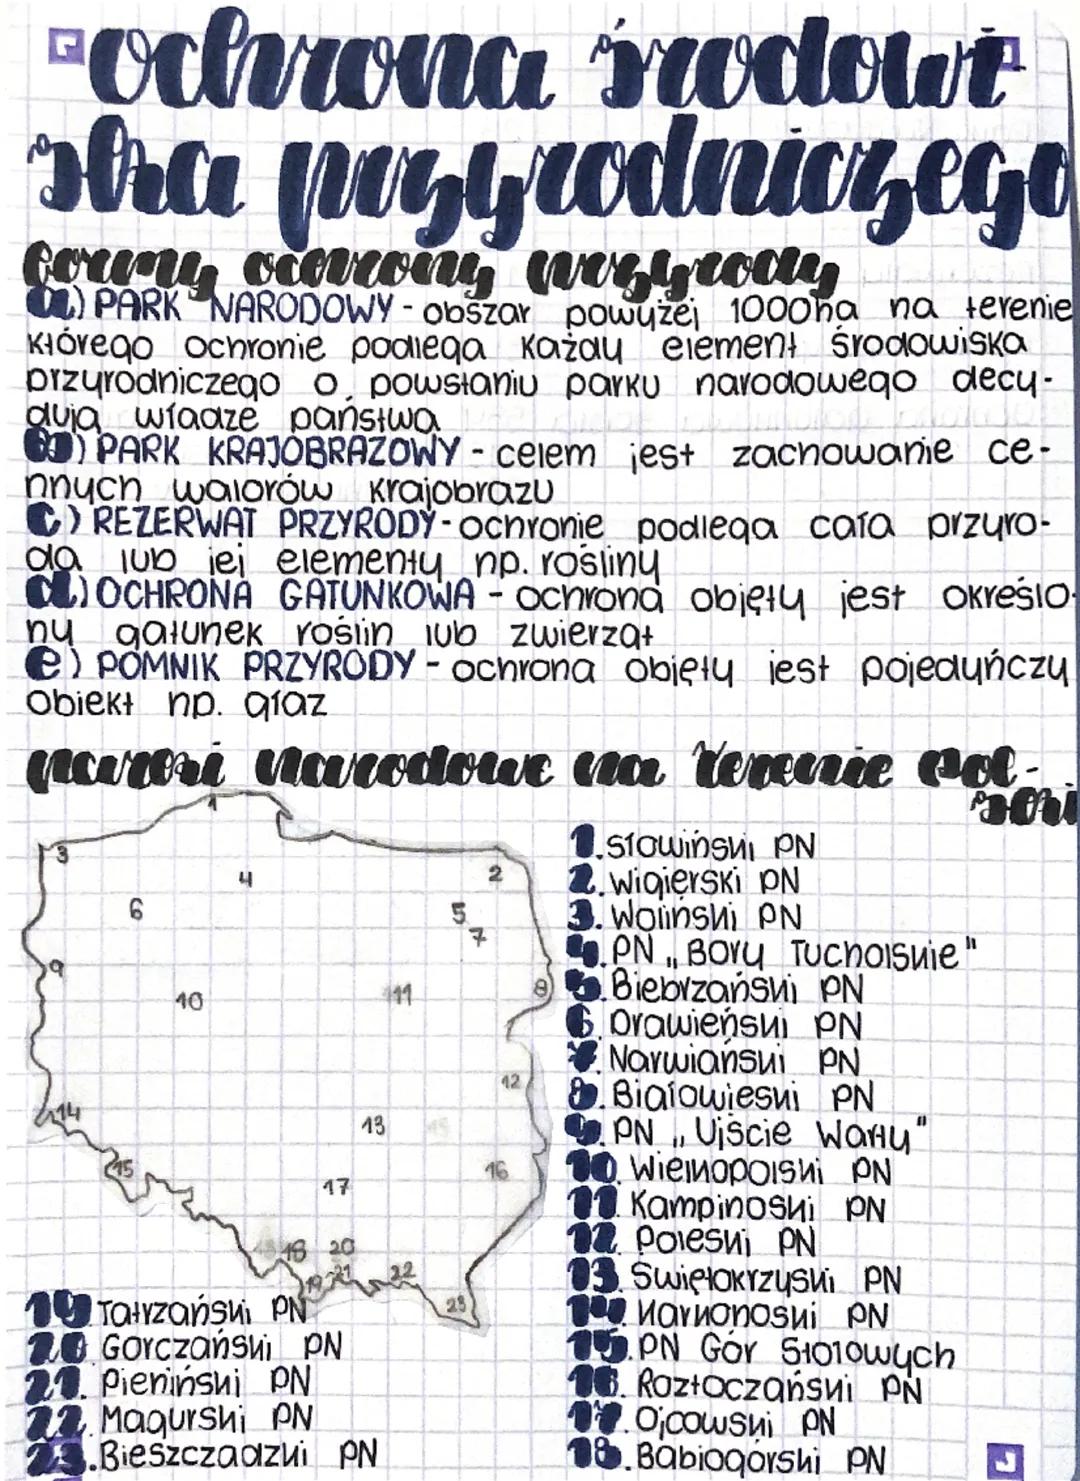 ochrona środowi
ska przyrodniczego
formy ochrony przyrody
a) PARK NARODOWY - obszar powyżej 1000ha na terenie
którego ochronie podlega każdy element środowiska
przyrodniczego o powstaniu parku narodowego decy-
dują władze państwa
b) PARK KRAJOBRAZOWY - celem jest zachowanie ce-
nnych walorów krajobrazu
c) REZERWAT PRZYRODY - ochronie podlega cała przyro-
da lub jej elementy np. rośliny
d) OCHRONA GATUNKOWA - ochroną objęty jest określo-
ny gatunek roślin lub zwierząt
e) POMNIK PRZYRODY - ochroną objęty jest pojedyńczy
obiekt np. głaz
parki narodowe na terenie Pol-
ski
1
3
4
2
6
5
7
9
10
11
8
12
14
13
15
16
17
18
20
19
21
22
23
1. Słowiński PN
2. Wigierski PN
3. Woliński PN
4. PN „Bory Tucholskie"
5. Biebrzański PN
6. Drawieński PN
7. Narwiański PN
8. Białowieski PN
9. PN „Ujście Warty"
10. Wielkopolski PN
11. Kampinoski PN
12. Poleski PN
13. Świętokrzyski PN
14. Karkonoski PN
15. PN Gór Stołowych
16. Roztoczański PN
17. Ojcowski PN
18. Babiogórski PN
19 Tatrzański PN
20 Gorczański PN
21. Pieniński PN
22. Magurski PN
23. Bieszczadzki PN